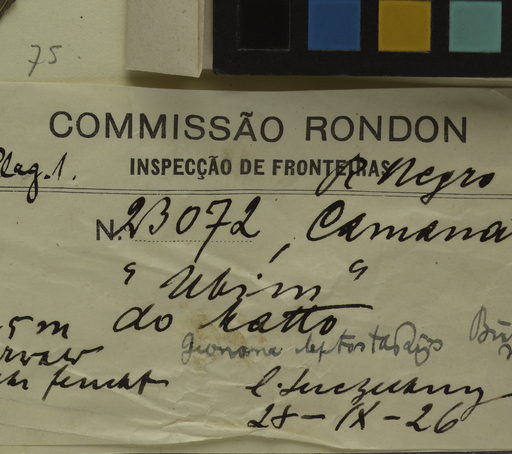 75
COMMISSÃO RONDON
INSPECÇÃO DE FRONTEIRAS
Plag. 1. R. Negro
N. 23072, Camana
"Ubim"
5 m do Matto
Geonoma leptostachys Bur
feucht
28-IX-26